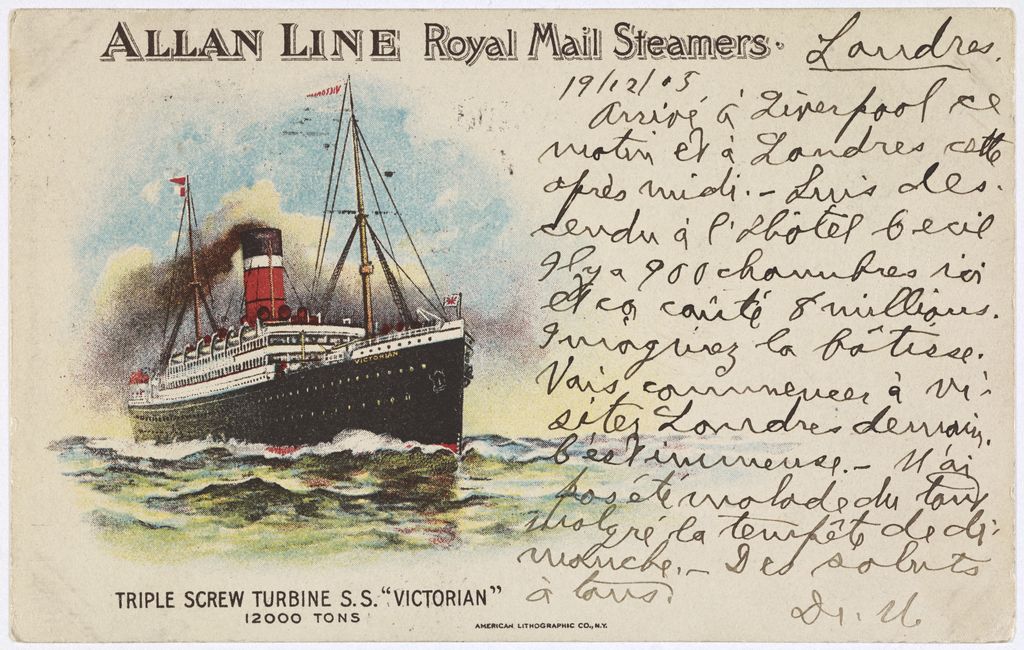 ALLAN LINE Royal Mail Steamers.
Londres.
19/12/05
Arrivé à Liverpool ce
matin et à Londres cette
après midi. - Suis des-
cendu à l'Hôtel Cecil
Il y a 900 chambres ici
et ça coûté 8 millions.
Imaginez la bâtisse.
Vais commencer à vi-
siter Londres demain.
C'est immense. - N'ai
pas été malade du tout
malgré la tempête de di-
manche. - Des saluts
à tous.
Dr. N.
VICTORIAN
TRIPLE SCREW TURBINE S.S. "VICTORIAN"
12000 TONS
AMERICAN LITHOGRAPHIC CO., N.Y.